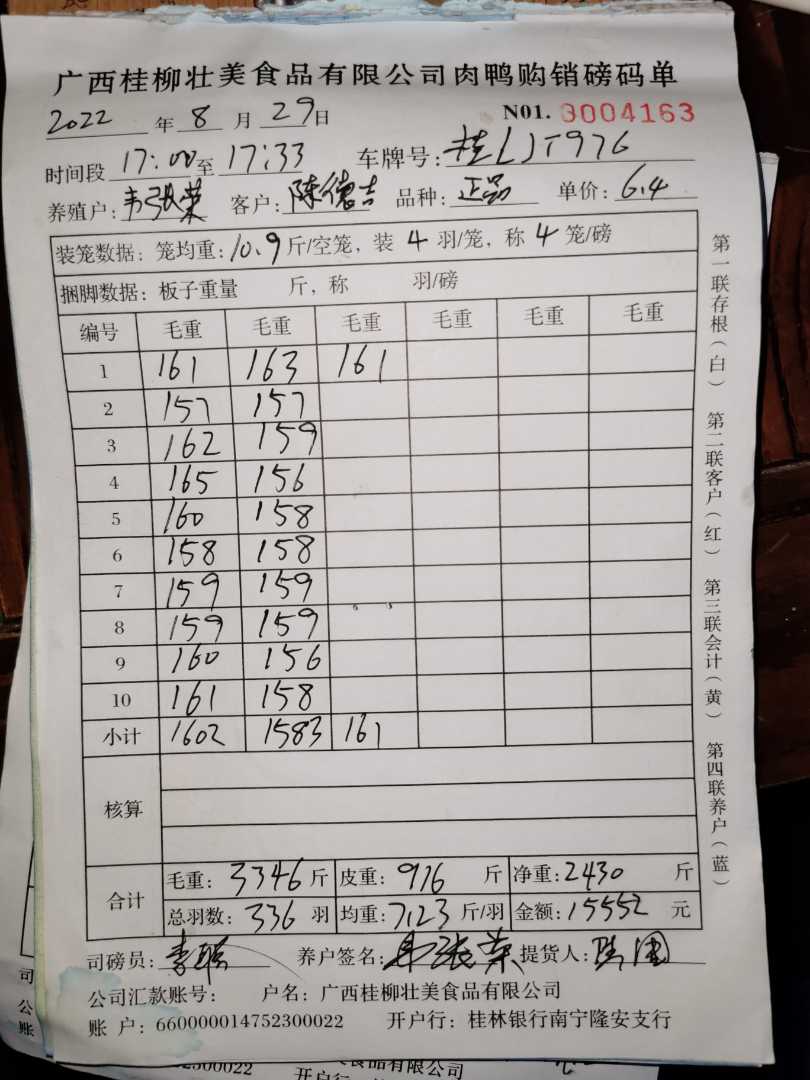 广西桂柳壮美食品有限公司肉鸭购销磅码单
2022 年 8 月 29 日 N01. 0004163
时间段 17:00 至 17:33 车牌号: 桂LJT976
养殖户: 韦张荣 客户: 陈德吉 品种: 正品 单价: 6.4
装笼数据: 笼均重: 10.9 斤/空笼, 装 4 羽/笼, 称 4 笼/磅
捆脚数据: 板子重量 斤, 称 羽/磅
编号 毛重 毛重 毛重 毛重 毛重 毛重
1 161 163 161
2 157 157
3 162 159
4 165 156
5 160 158
6 158 158
7 159 159
8 159 159
9 160 156
10 161 158
小计 1602 1583 161
核算
合计 毛重: 3346 斤 皮重: 916 斤 净重: 2430 斤
总羽数: 336 羽 均重: 7.23 斤/羽 金额: 15552 元
司磅员: 养户签名: 韦张荣 提货人:
公司汇款账号: 户名: 广西桂柳壮美食品有限公司
账 户: 660000014752300022 开户行: 桂林银行南宁隆安支行
第一联存根(白) 第二联客户(红) 第三联会计(黄) 第四联养户(蓝)
司
公
账